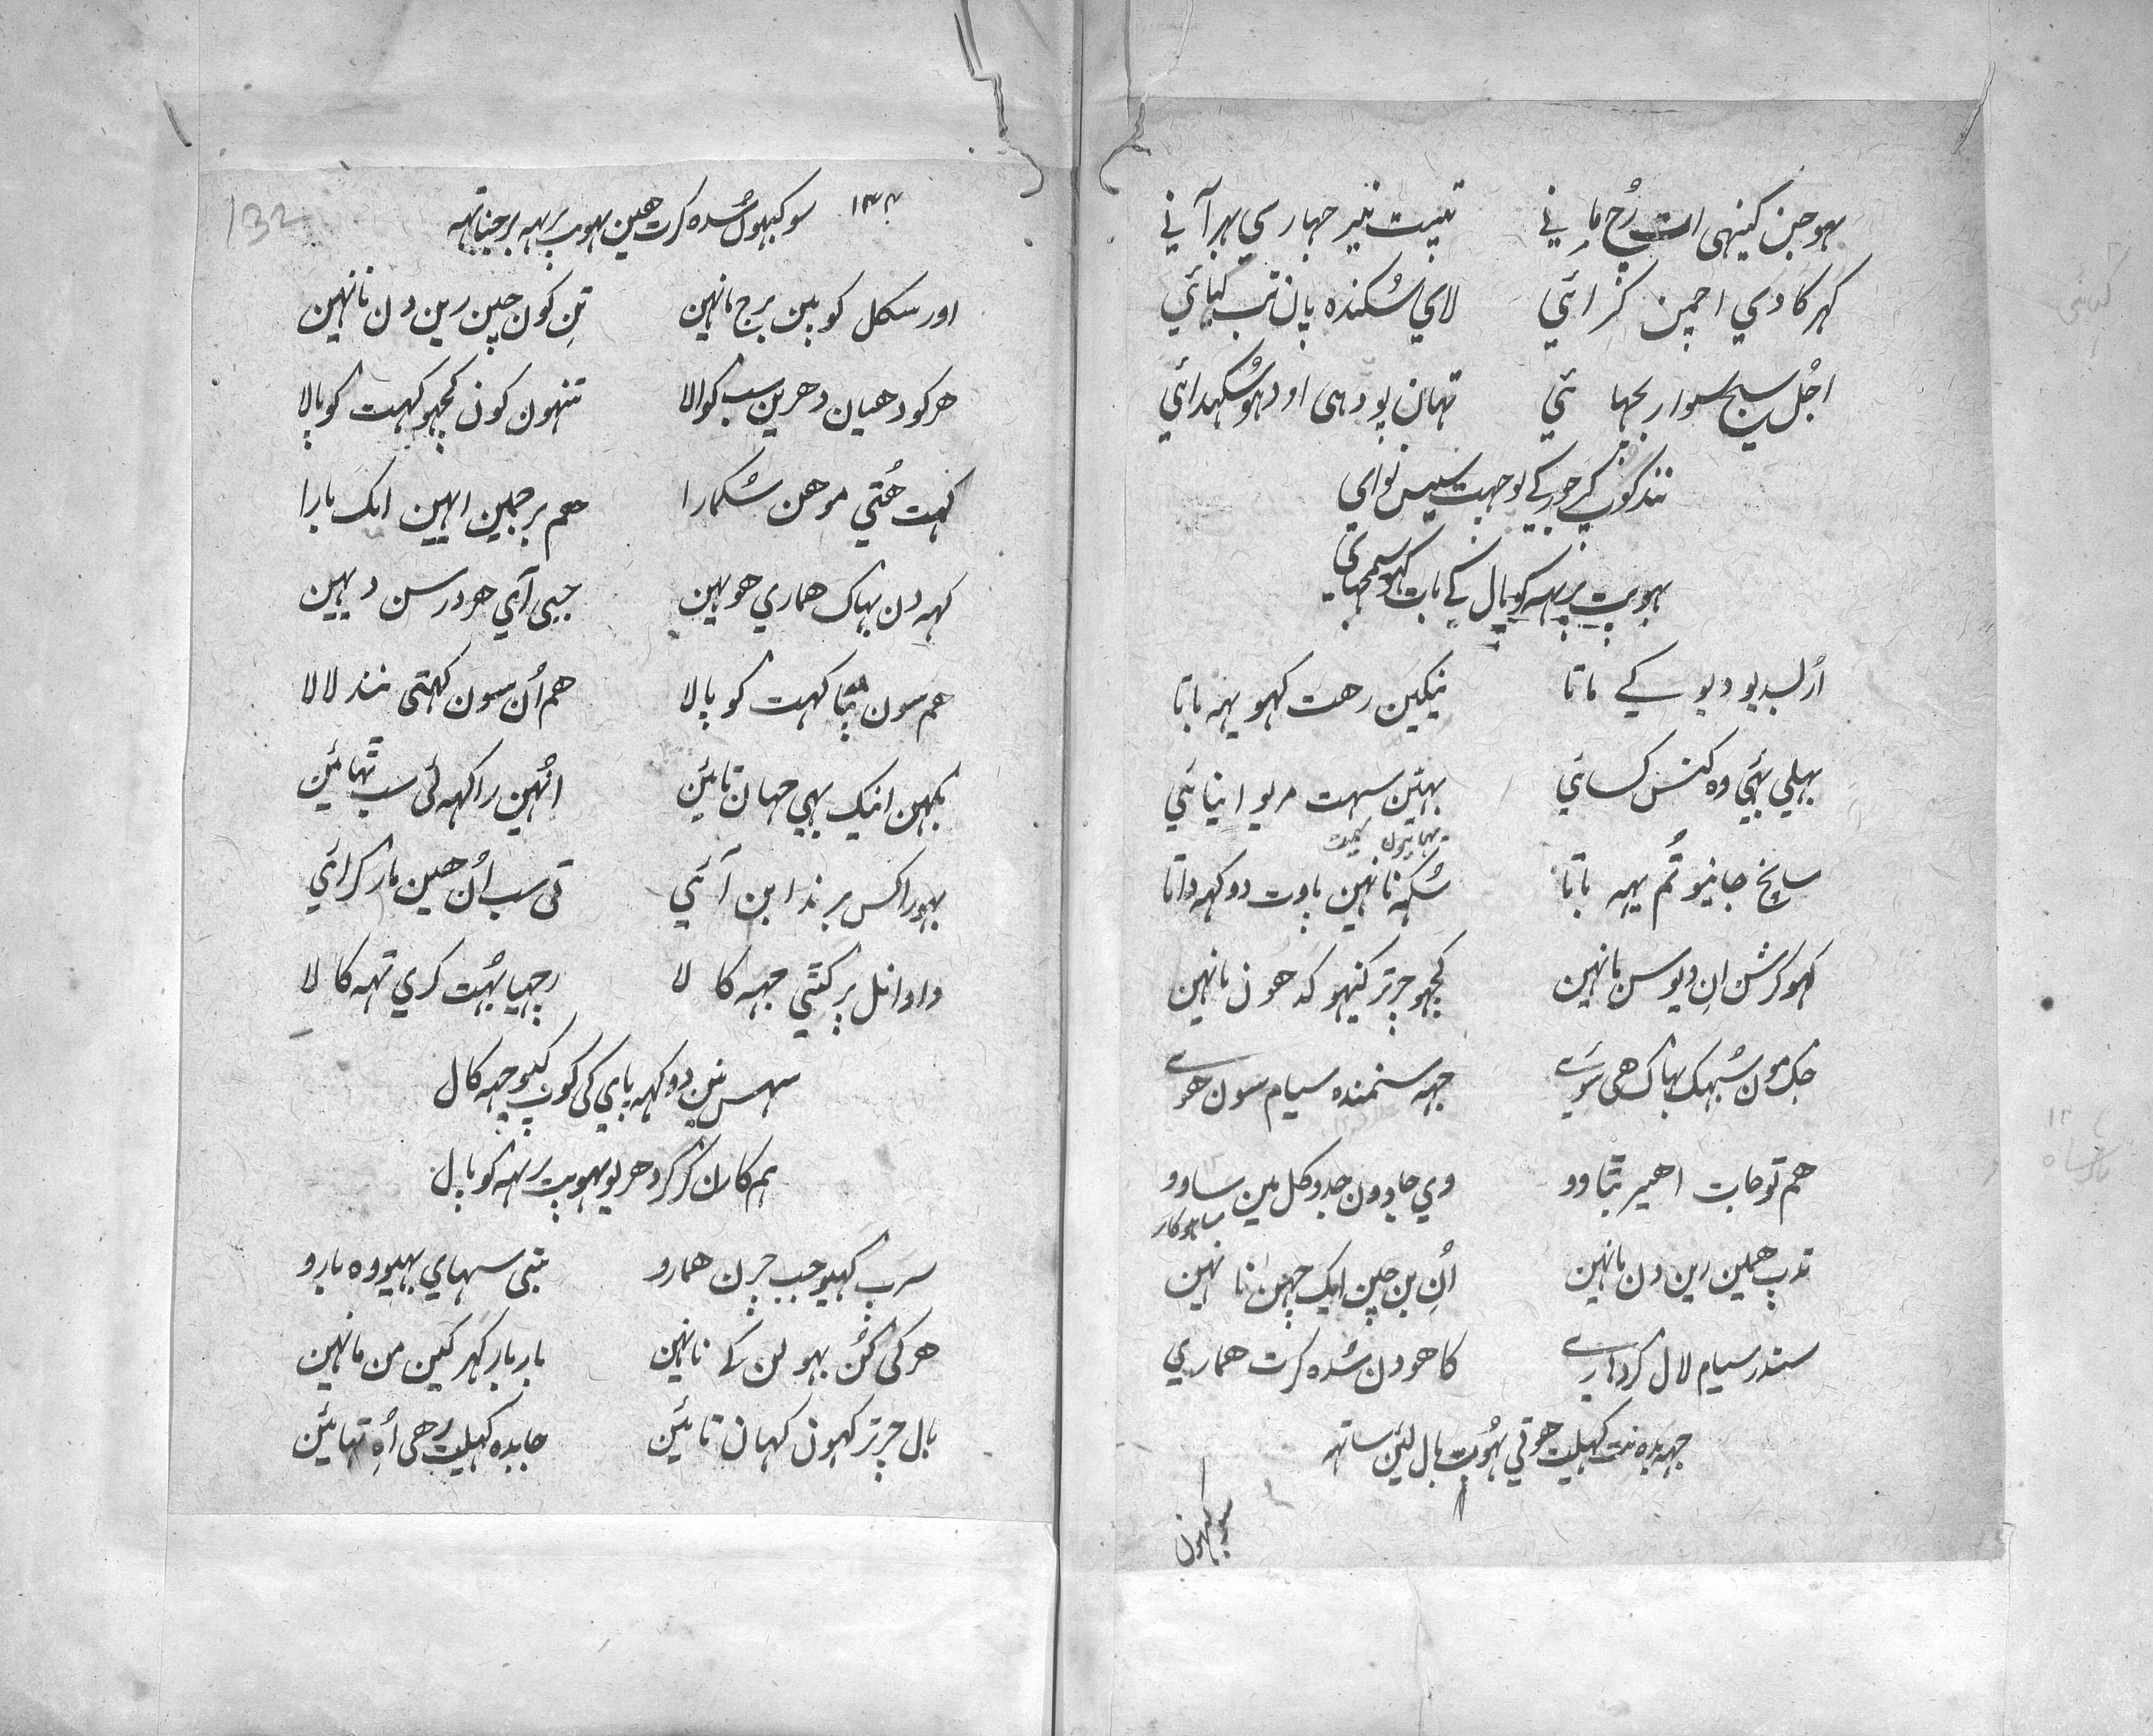 بهوجن کینهی ات رُچ مانِي تپت نیر جهاري بهر آني
کهر کا دي اچمن کرائي لاي سُکنده پان تب کهائي
اجُل سیج سوار بچهائي تهان پودهی اودهو سُکهدائي
نند کوپ کر جورکي پوجهت سیس نواي
بهوپت پربهه کوپال کي بات کهو سمجهاي
اُر بسدیو دیوکے ماتا نیکین رهت کهو یهه باتا
بهلي بهئي وه کنس کسائي بهتن سهت مریو انیائي
سانچ جانیو تُم یهه باتا سُکهه نانهین پاوت دوکهه داتا
کهو کرشن اِن دیوسن مانهین کچهو چرتر کینهو کدهون نانهین
جک مون سُبهک بهاک هی سوئے جهه سنمنده سیام سون هوے
هم تو جات اهیر بتاوو وي جادون جدوکل مین ساوو
ساهوکار
تدپ همین رین دن مانهین اُن بن چین ایک چهن نانهین
سندر سیام لال کردهارے کاهو دن سُده کرت هماري
جهه بده نت کهیلت هوتي بهُوپت بال لئین ساتهه
سو کبهون
۱۳۲
132
سو کبهون سُده کرت هین بهوپ پربهه برجناتهه
اور سکل کوپین برج مانهین تِن کون چین رین دن نانهین
هر کو دهیان دهرین سب کوالا تنهون کون کچهو کهت کوپالا
کهت هُتي موهن سُکمارا هم برجمین اهین ایک بارا
کهه دن بهاک هماري هوهین جبی آي هر درسن دیهین
هم سون پتا کهت کوپالا هم اُن سون کهتی نند لالا
بکهن انیک بهي جهان تائین اُنهین راکهه لئی سب تهائین
بهو راکس برندابن آئي تی سب اُن هین مار کرائي
داوانل پرکتي جهه کالا رچهیا بهُت کري تهه کالا
سهس نین دوکهه پاي کی کوپ کیو جهه کال
هم کارن کرکر دهریو بهوپت پربهه کوپال
سرپ کهیو جب چرن همارو تبی سهاي بهیو وه بارو
هر کی کُن بهولن کے نانهین بار بار کهر کین من مانهین
بال چرتر کهون کهان تائین جا بده کهیلت رهی اُهِ تهائین